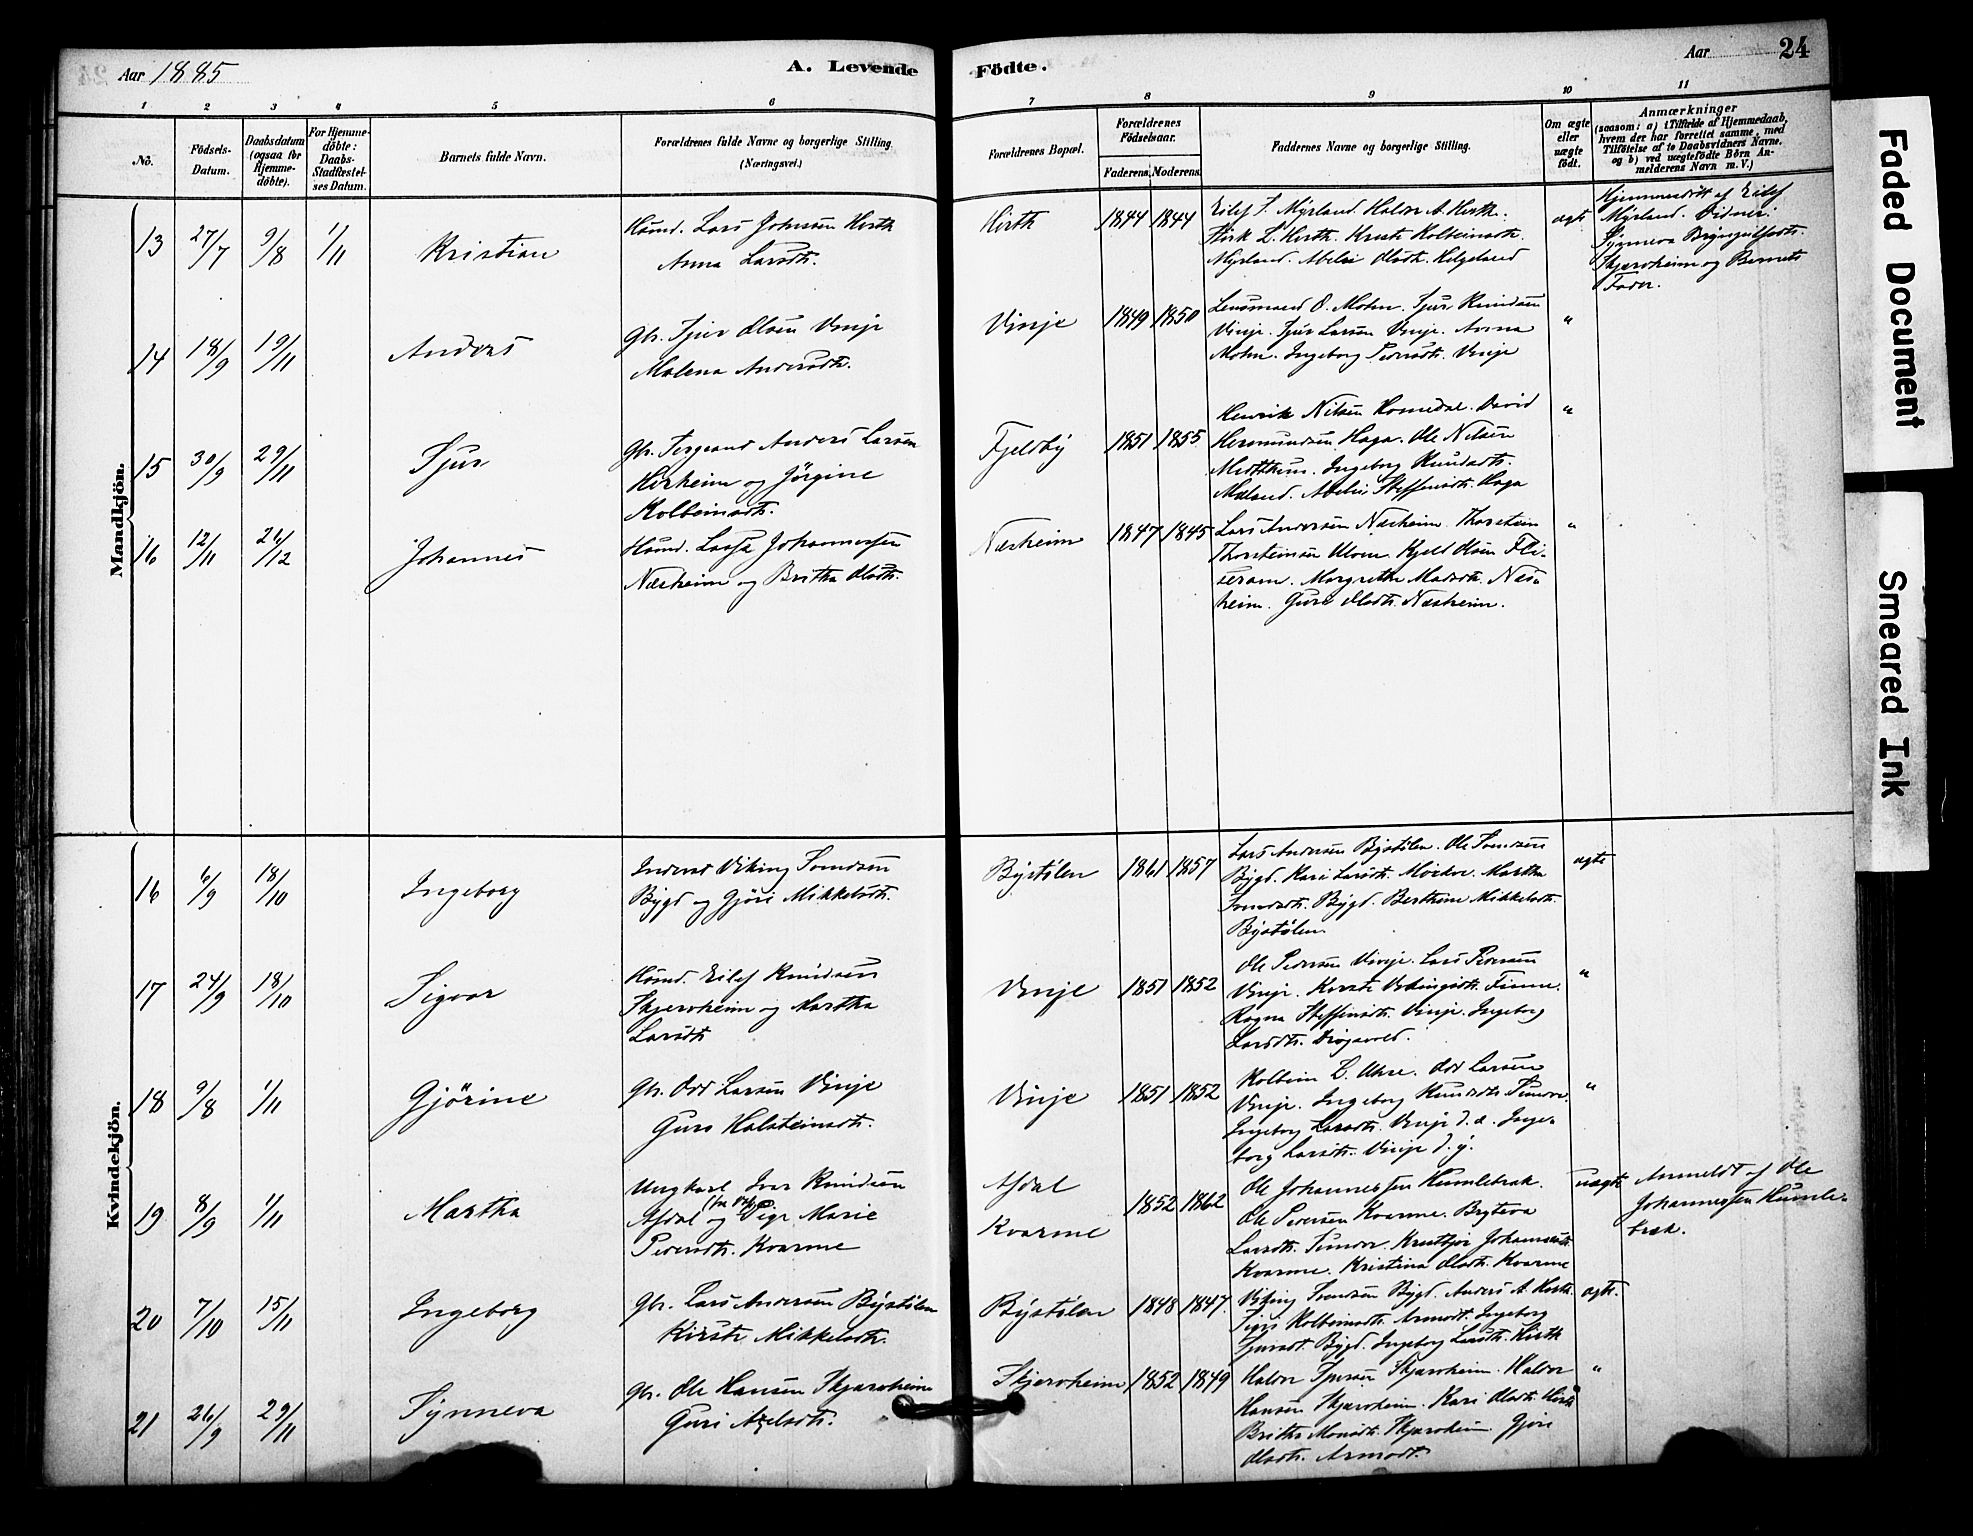 Aar 1885
A. Levende
Födte.
Aar
24
1
2
3
4
5
6
7
8
9
10
11
No.
Födsels-
Datum.
Daabsdatum
(ogsaa for
Hjemme-
döbte).
For Hjemme-
döbte:
Daabs-
Stadfæstel-
ses Datum.
Barnets fulde Navn.
Forældrenes fulde Navne og borgerlige Stilling
(Næringsvei.)
Forældrenes Bopæl.
Forældrenes
Födselsaar.
Faderens. Moderens.
Faddernes Navne og borgerlige Stilling.
Om ægte
eller
uægte
födt.
Anmærkninger
(saasom: a) i Tilfælde af Hjemmedaab,
hvem der har forrettet samme, med
Tilföielse af to Daabsvidners Navne,
og b) ved uægtefödte Börn An-
melderens Navn m. V.)
Mandkjön.
13 27/7 9/8 1/11 Kristian
Huusmd. Lars Johnsen Herth
Anna Larsdtr.
Herth 1844 1844
Eilef S. Myrland. Haldor A. Herth.
L. Herth. Kolbeinsdtr.
Myrland. Olsdtr. Helgeland
ægte
Hjemmedöbt af Eilef
Myrland. Vidner:
Synneva Brynjulfsdtr.
Skjerveheim og Barnets
Fader.
14 18/9 19/11 Anders
Gbr. Sjur Olsen Vinje
Malena Andersdtr.
Vinje 1849 1850
Lensmand O. Mohn. Sjur Knudsen
Vinje. Sjur Larsen Vinje. Anna
Mohn. Ingeborg Pedersdtr. Vinje
"
15 30/9 29/11 Sjur
Gbr. Sergeant Anders Larsen
Hirheim og Jörgine
Kolbeinsdtr.
Fjeldby 1851 1855
Henrik Nilsen Homedal. David
Hermundsen Haga. Ole Nilsen
Ingeborg Knudsdtr.
Mæland. Steffensdtr. Haga
"
16 12/11 26/12 Johannes
Huusmd. Lasse Johannessen
Næsheim og Britha Olsdtr.
Næsheim 1847 1845
Lars Andersen Næsheim. Thorstein
Thorsteinsen. Kjeld Olsen Fli-
seram. Margretha Madsdtr. Næs-
heim. Guri Olsdtr. Næsheim.
"
Kvindekjön.
16 6/9 18/10 Ingeborg
Inderst Viking Svendsen
Bygd og Gjöri Mikkelsdtr.
Bystölen 1861 1857
Lars Andersen Bystölen. Ole Svendsen
Bygd. Kari Larsdtr. Mörkve. Martha
Svendsdtr. Bygd. Berthine Mikkelsdtr.
Bystölen.
ægte
17 24/9 18/10 Sigvor
Huusmd. Eilef Knudsen
Skjerveheim og Martha
Larsdtr.
Vinje 1851 1852
Ole Pedersen Vinje. Lars Pedersen
Vinje. Kirsti Vikingsdtr. Finne.
Ragna Steffensdtr. Vinje. Ingeborg
Larsdtr. Drögsvold.
"
18 9/8 1/11 Gjörine
Gbr. Odd Larsen Vinje
Guro Halsteinsdtr.
Vinje 1851 1852
Kolbein L. Uhre. Odd Larsen
Vinje. Ingeborg Knudsdtr. Tunve.
Ingeborg Larsdtr. Vinje d. æ. Inge-
borg Larsdtr. Vinje d. y.
"
19 8/9 1/11 Martha
Ungkarl Ivar Knudsen
Afdal og Pige Marie
Pedersdtr. Kvarme
Afdal
Kvarme 1852 1862
Ole Johannessen Humlebrek.
Ole Pedersen Kvarme. Bryteva
Larsdtr. Tunve. Johannesdtr.
Kvarme. Kristina Olsdtr. Kvarme
uægte
Anmeldt af Ole
Johannessen Humle-
brek.
20 7/10 15/11 Ingeborg
Gbr. Lars Andersen Bystölen
Kirsti Mikkelsdtr.
Bystölen 1848 1847.
Viking Svendsen Bygd. Anders A. Herth.
Kolbeinsdtr. Armodt. Ingeborg
Sjursdt. Bygd. Ingeborg Larsdtr. Herth
ægte.
21 26/9 29/11 Synneva
Gbr. Ole Hansen Skjerveheim
Guri Axelsdtr.
Skjerveheim 1852 1849
Haldor Sjursen Skjerveheim. Haldor
Hansen Skjerveheim. Kari Olsdtr. Herth
Britha Monsdtr. Skjerveheim. Gjöri
Olsdtr. Armodt.
"
Faded Document
Smeared Ink